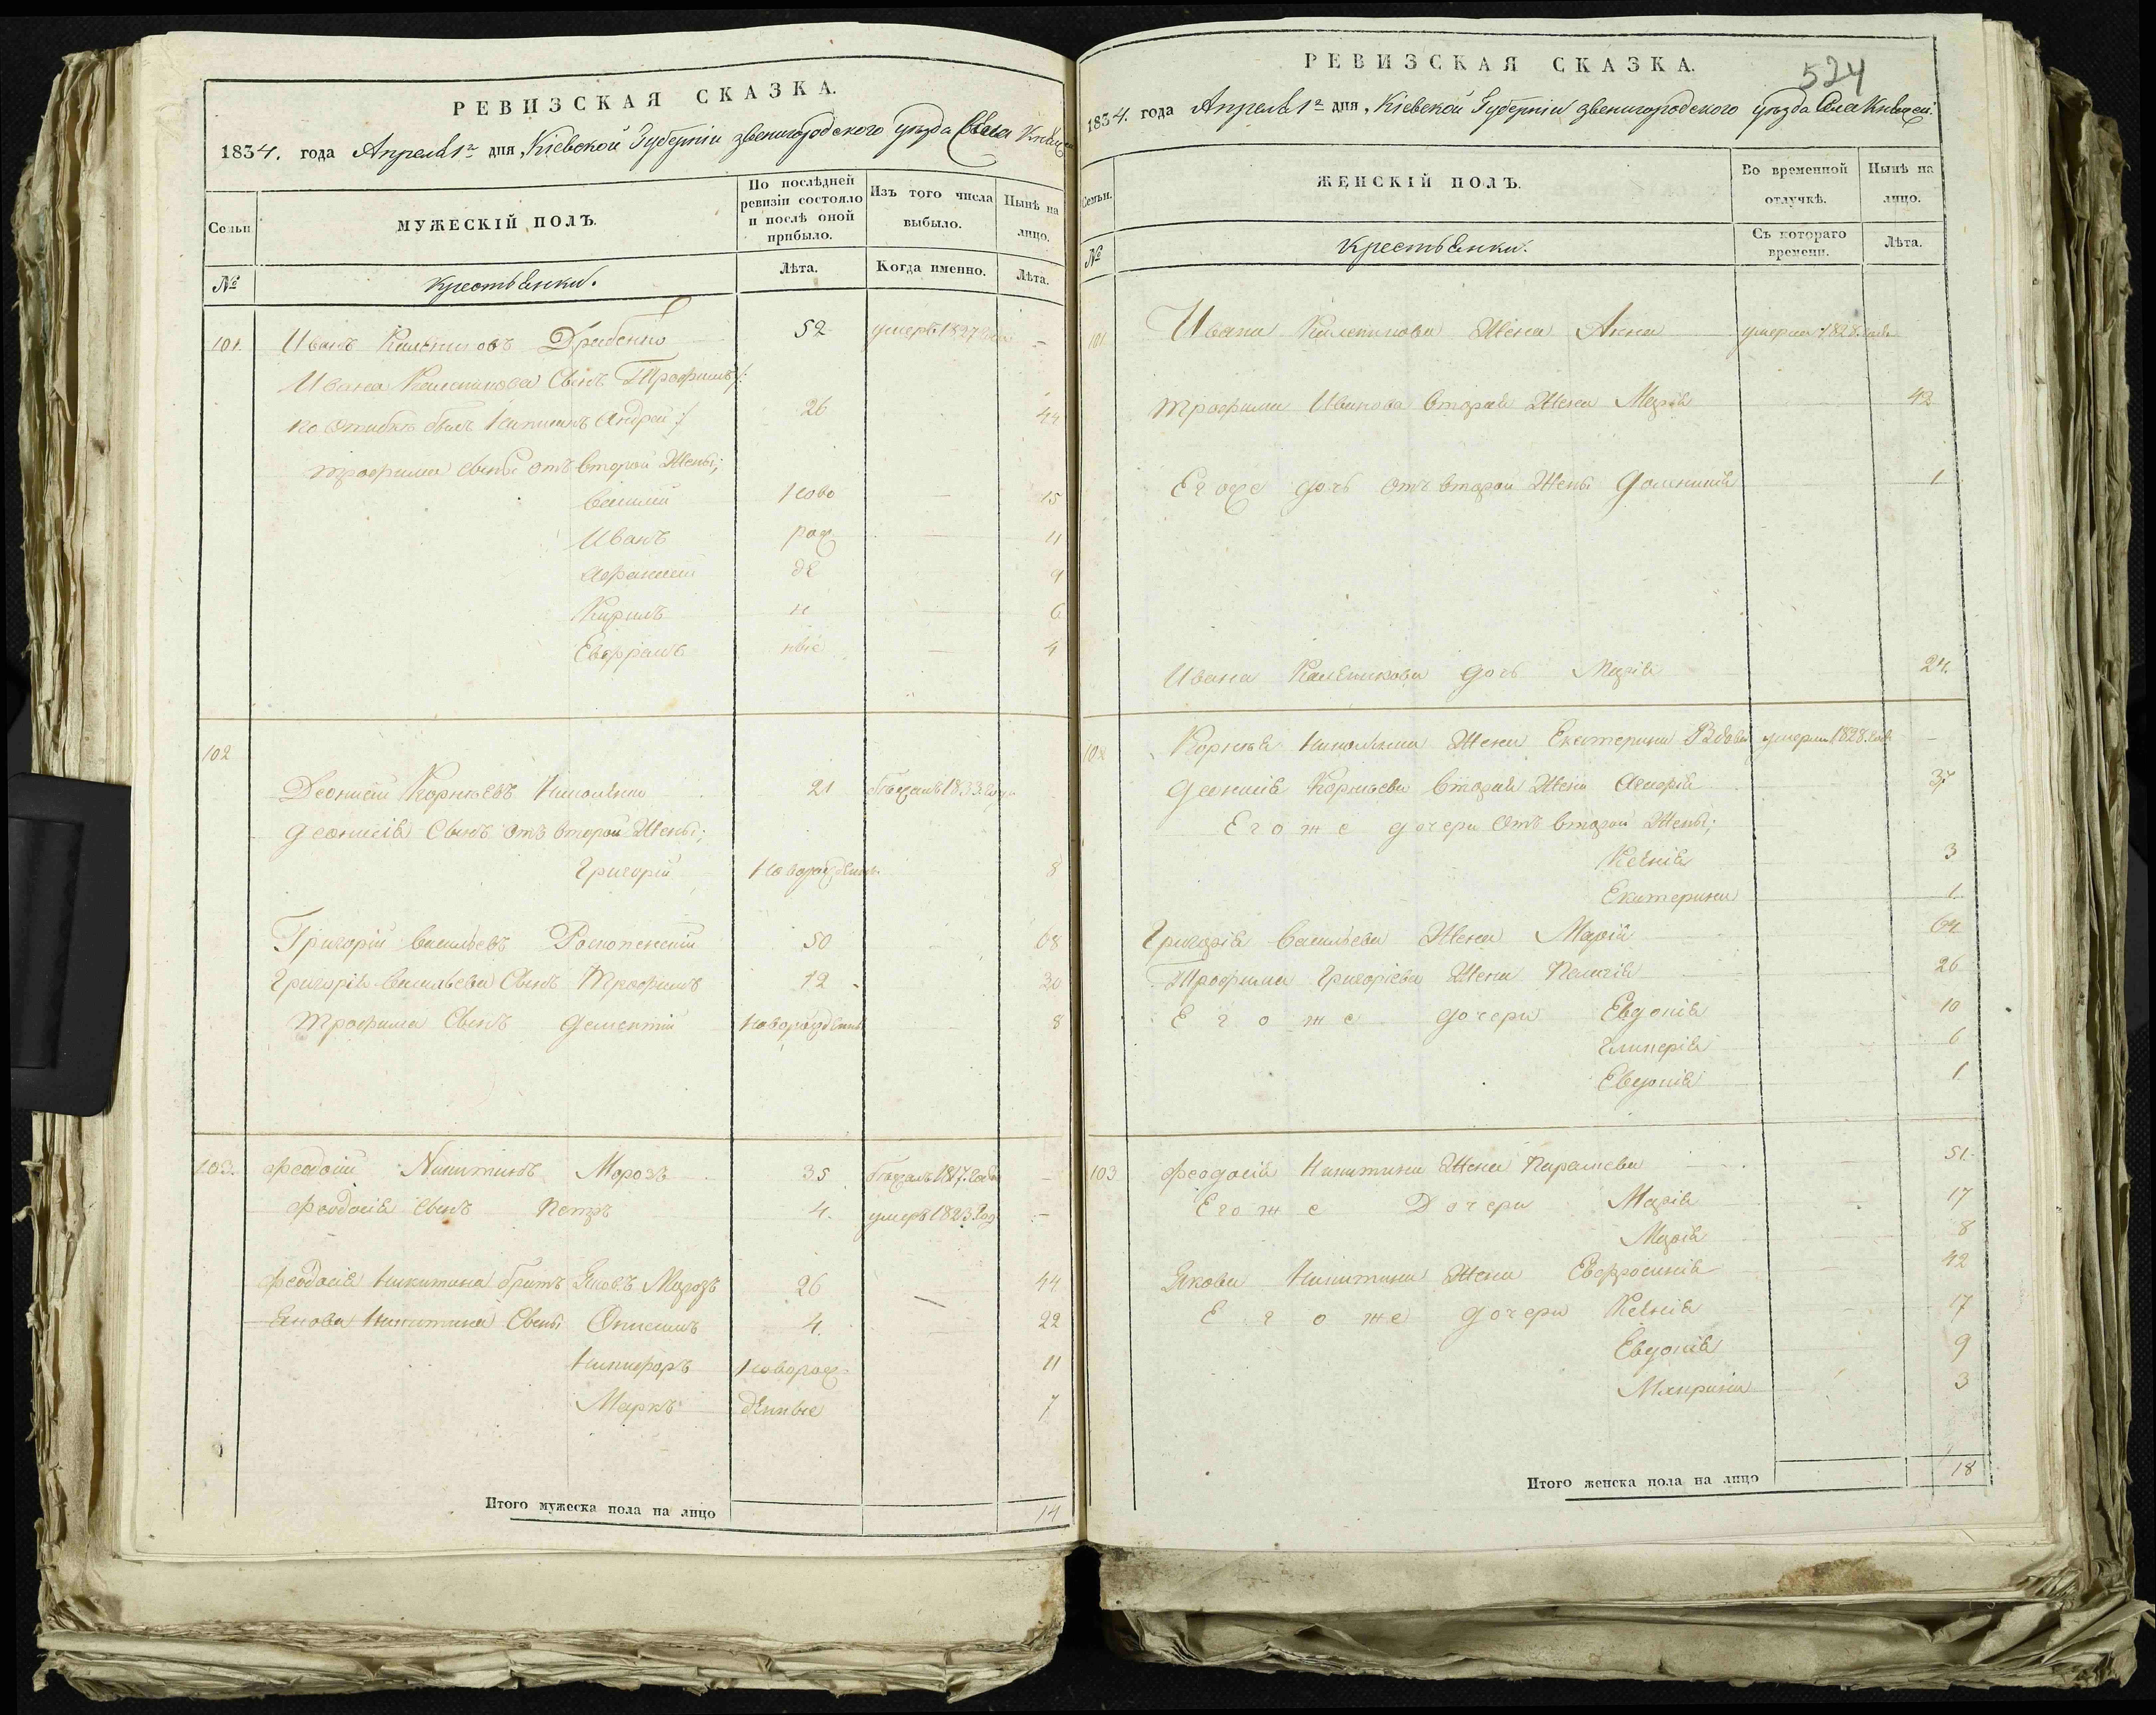 РЕВИЗСКАЯ СКАЗКА.
1834. года Апреля 1го дня, Кіевской Губерніи звенигородского уѣзда Села
Семьи
МУЖЕСКІЙ ПОЛЪ.
По послѣдней ревизіи состояло и послѣ оной прибыло.
Изъ того числа выбыло.
Нынѣ на лицо.
№
Крестьяне.
Лѣта.
Когда именно.
Лѣта.
101. Иванъ Калениковъ Драбенко 52 умеръ 1827 года -
Ивана Каленикова Сынъ Трофимъ /:
по ошибкѣ былъ написанъ Андрей :/ 26 44
трофима сыны отъ второй Жены;
василий ново 15
Иванъ рож 11
Афанасий де 9
Кирилъ н 6
Евфраимъ ные 4
102
Деонисий Корнѣевъ 21 бѣжалъ 1833 года
Деонисія Сынъ отъ второй Жены;
Григорий новорожденный 8
Григорий Васильевъ 50 68
Григорія Васильева Сынъ Трофимъ 12 30
Трофима Сынъ Дементий новорожденный 8
103. Феодосий Никитинъ Морозъ 35 бѣжалъ 1817. года -
Феодосія сынъ Петръ 4. умеръ 1823 год -
Феодосія Никитина братъ Яковъ Морозъ 26 44
Якова Никитина Сыны Онисимъ 4. 22
Никифоръ новорож 11
Маркъ денные 7
Итого мужеска пола на лицо 14
524
РЕВИЗСКАЯ СКАЗКА.
1834. года Апреля 1го дня, Кіевской Губерніи звенигородского уѣзда Села
Семьи.
ЖЕНСКІЙ ПОЛЪ.
Во временной отлучкѣ.
Нынѣ на лицо.
№
Крестьянки.
Съ котораго времени.
Лѣта.
101 Ивана Каленикова Жена Анна умерла 1828. года
трофима Иванова вторая Жена Марія 42
Его же дочь отъ второй Жены Домникія 1
Ивана Каленикова дочь Марія 24.
102 Корнѣя Жена Екатерина Вдова умерла 1828. года -
Деонисія Корнѣева вторая Жена 37
Его же дочери отъ второй Жены;
Ксенія 3
Екатерина 1.
Григорія Васильева Жена Марія 64
Трофима Григоріева Жена Пелагія 26
Его же дочери Евдокія 10
Гликерія 6
Евдокія 1
103 Феодосія Никитина Жена Парасковія 51
Его же Дочери Марія 17
Марія 8
Якова Никитина Жена Евфросинія 42
Его же дочери Ксенія 17
Евдокія 9
Макрина 3
Итого женска пола на лицо 18